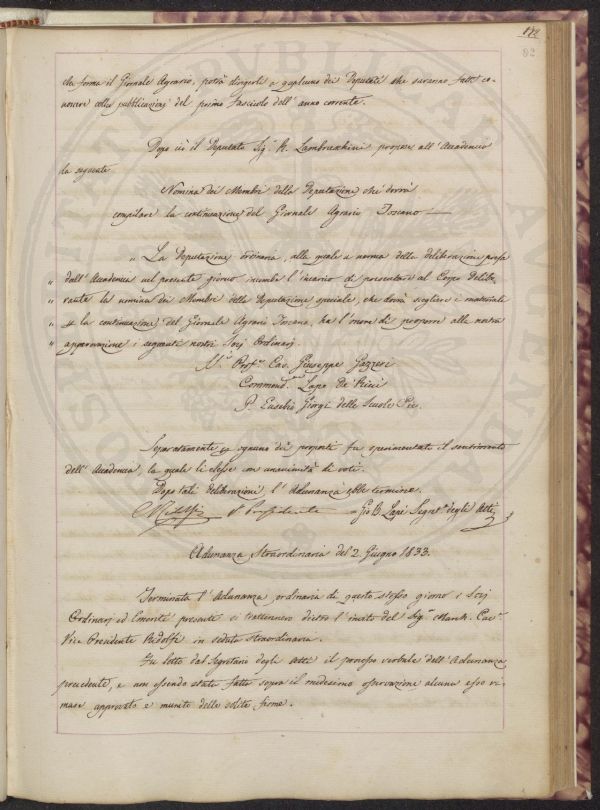 che forma il Giornale Agrario, potrà dirigerli a qualcuno dei Deputati che saranno fatti co-
noscere colla pubblicazione del primo Fascicolo dell' anno corrente.
Dopo ciò il Deputato Sig. R. Lambruschini propose all' Accademia
la seguente
Nomina dei Membri della Deputazione che dovrà
compilare la continuazione del Giornale Agrario Toscano
" La Deputazione ordinaria, alla quale a norma della deliberazione presa
" dall' Accademia nel presente giorno incombe l' incarico di presentare al Corpo delibe-
" rante la nomina dei Membri della Deputazione speciale, che dovrà scegliere i materiali
" la continuazione del Giornale Agrario Toscano, ha l' onore di proporre alla nostra
" approvazione i seguenti nostri Socj Ordinarj.
Prof. Cav. Giuseppe Gazzeri
Commend. Lapo De' Ricci
P. Eusebio Giorgi delle Scuole Pie.
Separatamente ognuno dei proposti fu sperimentato il sentimento
dell' Accademia, la quale li elesse con unanimità di voti.
Dopo tali deliberazioni l' Adunanza ebbe termine.
CRidolfi V. Presidente = Gio B. Lapi Segret. degli Atti
Adunanza Straordinaria del 2. Giugno 1833.
Terminata l' Adunanza ordinaria di questo stesso giorno i Socj
Ordinarj ed Emeriti presenti si trattennero dietro l' invito del Sig. March. Cav.
Vice Presidente Ridolfi in seduta straordinaria.
Fu letto dal Segretario degli Atti il processo verbale dell' Adunanza
precedente, e non essendo stata fatta sopra il medesimo osservazione alcuna esso ri-
mase approvato e munito delle solite firme.
92